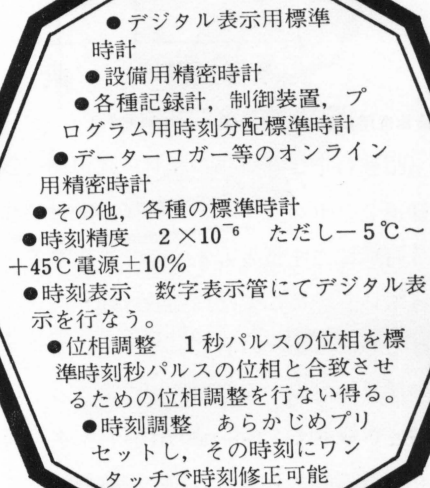 ●デジタル表示用標準
時計
●設備用精密時計
●各種記録計，制御装置，プ
ログラム用時刻分配標準時計
●データーロガー等のオンライン
用精密時計
●その他，各種の標準時計
●時刻精度　2×10⁻⁶　ただし－5℃～
＋45℃電源±10%
●時刻表示　数字表示管にてデジタル表
示を行なう。
●位相調整　1秒パルスの位相を標
準時刻秒パルスの位相と合致させ
るための位相調整を行ない得る。
●時刻調整　あらかじめプリ
セットし，その時刻にワン
タッチで時刻修正可能